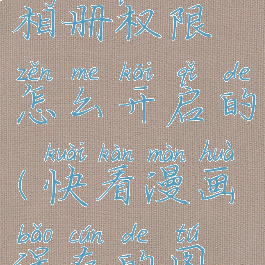 相册权限
zěn me kāi qǐ de
怎么开启的
kuài kàn màn huà
(快看漫画
bǎo cún de tú
保存的图